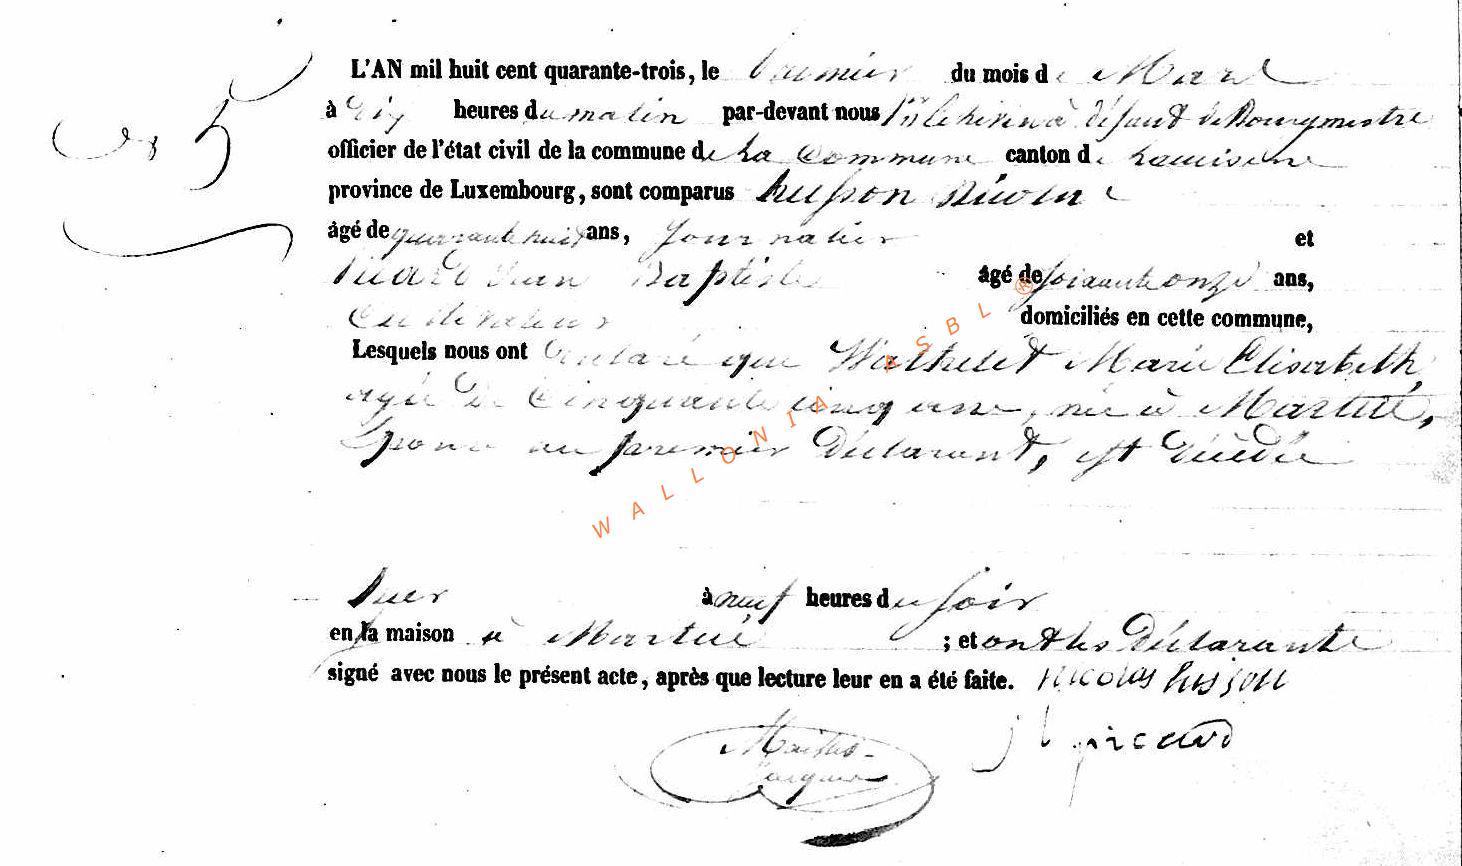 N° 5
L'AN mil huit cent quarante-trois, le premier du mois de Mars
à dix heures du matin par-devant nous 1er Echevin à défaut de Bourgmestre
officier de l'état civil de la commune de La commune canton de
province de Luxembourg, sont comparus husson Nicolas
âgé de quarante huit ans, Journalier et
Picard Jean Baptiste âgé de soixante onze ans,
Cultivateur domiciliés en cette commune,
Lesquels nous ont déclaré que Wathelet Marie Elisabeth,
agée de cinquante cinq ans, née à Martué,
Epouse au premier Déclarant, est décédée
hier à neuf heures du soir
en la maison à Martué ; et ont les Déclarants
signé avec nous le présent acte, après que lecture leur en a été faite. Nicolas husson
j b picard
Jacques
WALLONIA ASBL ®